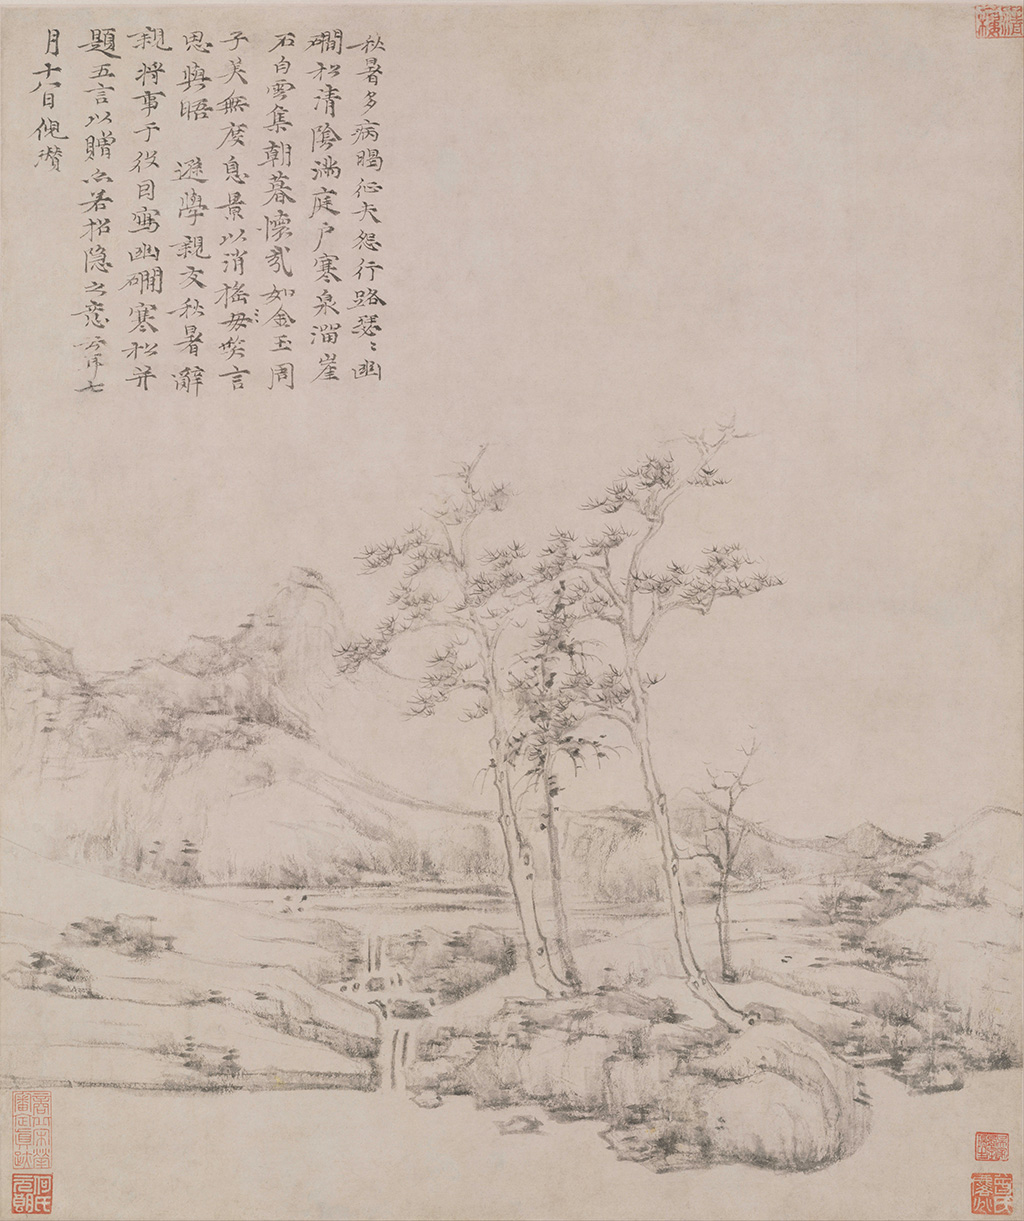 秋暑多病暍征夫怨行路瑟〻幽
磵松清陰滿庭戶寒泉溜崖
石白雲集朝暮懷哉如金玉周
子美無度息景以消搖毋〻焂言
思與晤 遜學親友秋暑辭
親將事于役因寫幽磵寒松并
題五言以贈亦若招隱之意云耳七
月十八日倪瓚
何氏元朗